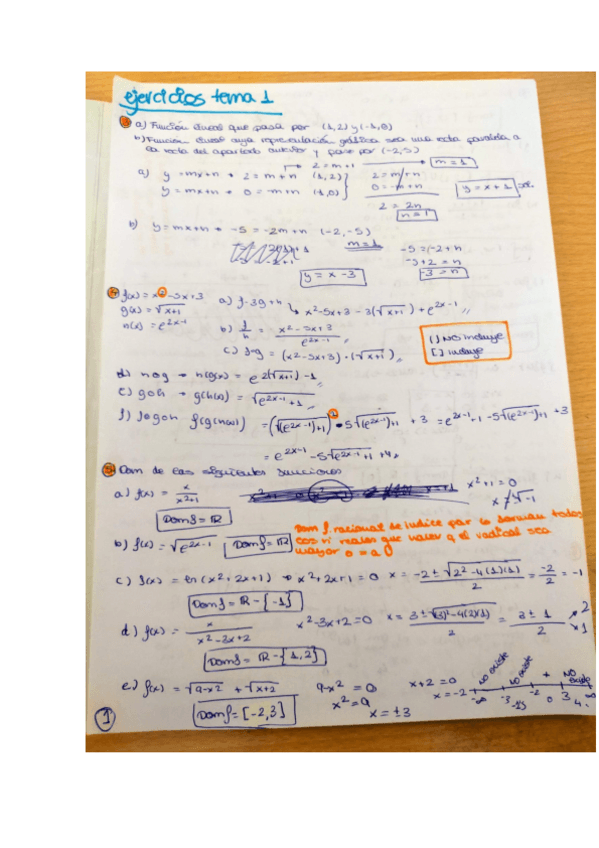 ejercicios tema 1
a) Función lineal que pasa por (1,2) y (-1,0)
b) Función lineal cuya representación gráfica sea una recta paralela a
la recta del apartado anterior y pase por (-2,5)
2 = m+1 → m = 1
a) y = mx+n → 2 = m+n (1,2) 2 = m+n
y = mx+n → 0 = -m+n (1,0) 0 = -m+n y = x+1
2 = 2n
n = 1
b) y = mx+n → -5 = -2m+n (-2,-5) m = 1 -5 = -2+n
-5+2 = n
y = x-3 -3 = n
f(x) = x²-5x+3 a) f-3g+h
g(x) = √x+1 ↳ x²-5x+3 - 3(√x+1) + e^2x-1
h(x) = e^2x-1 b) f/h = x²-5x+3 / e^2x-1
( ) NO incluye
[ ] incluye
c) f·g = (x²-5x+3)·(√x+1)
d) h o g → h(g(x)) = e^2(√x+1)-1
e) g o h → g(h(x)) = √e^2x-1 +1
f) f o g o h f(g(h(x))) = (√(e^2x-1)+1)² - 5√(e^2x-1)+1 + 3 = e^2x-1+1 - 5√(e^2x-1)+1 + 3
= e^2x-1 - 5√e^2x-1+1 + 4
Dom de las siguientes funciones
a) f(x) = x / x²+1 x²+1 = 0
x = √-1
Dom f = ℝ
b) f(x) = √e^2x-1 Dom f = ℝ
Dom f. racional se
todos
los nº reales que
el radical sea
mayor o = a 0
c) f(x) = ln(x²+2x+1) → x²+2x+1 = 0 x = -2 ± √2²-4(1)(1) / 2 = -2/2 = -1
Dom f = ℝ - {-1}
d) f(x) = x / x²-3x+2 x²-3x+2 = 0 x = 3 ± √(3)²-4(2)(1) / 2 = 3 ± 1 / 2 → 2
→ 1
Dom f = ℝ - {1,2}
e) f(x) = √9-x² + √x+2 9-x² = 0 x+2 = 0 No existe No existe + No existe
x² = 9 x = -2
Dom f = [-2,3] x = ±3
1